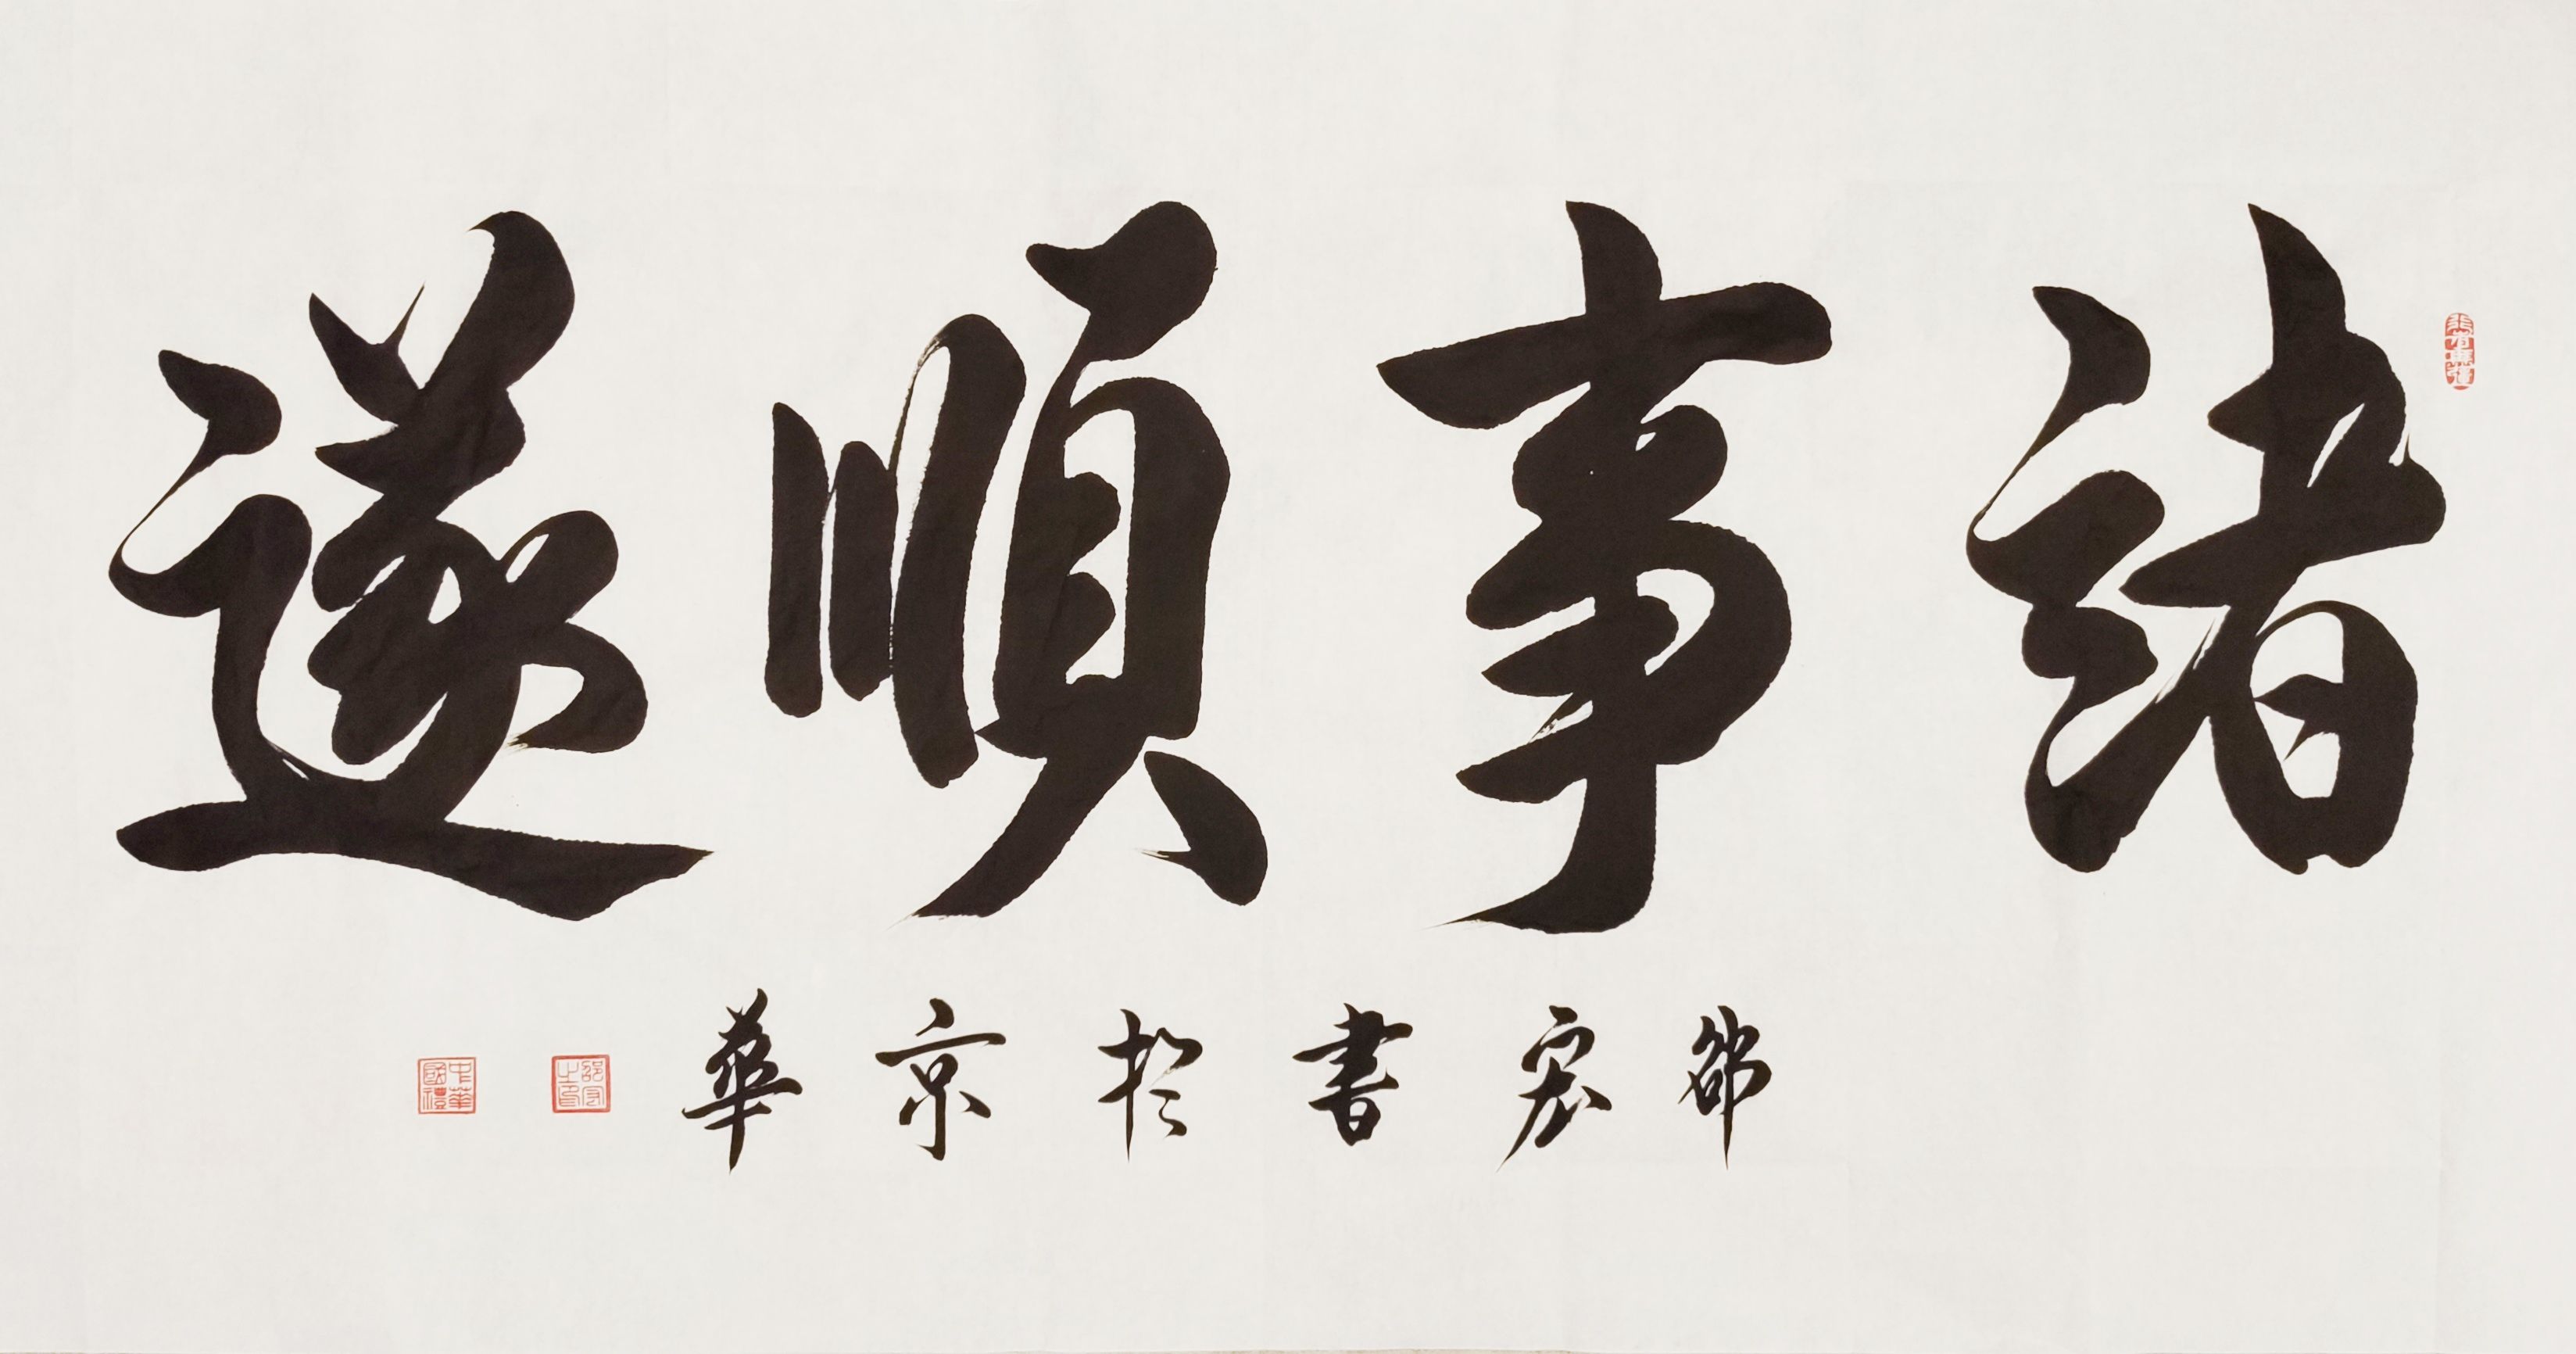 諸事順遂
邵宏書於京華
中華國禮